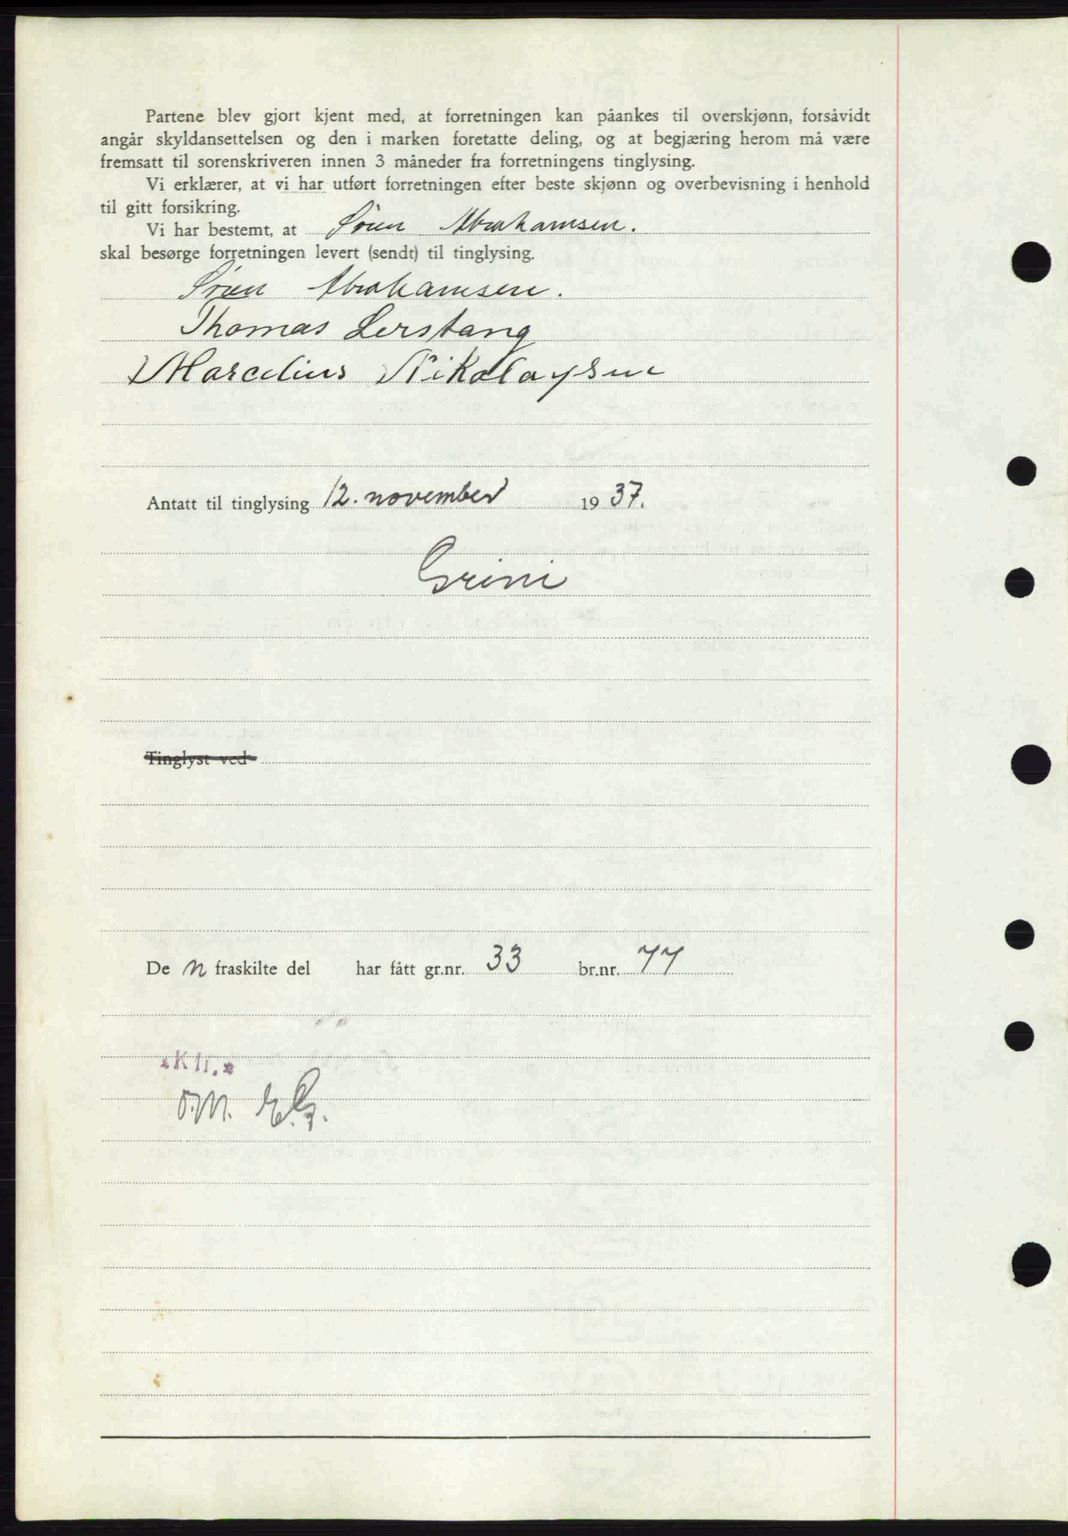 Partene blev gjort kjent med, at forretningen kan påankes til overskjønn, forsåvidt
angår skyldansettelsen og den i marken foretatte deling, og at begjæring herom må være
fremsatt til sorenskriveren innen 3 måneder fra forretningens tinglysing.
Vi erklærer, at vi har utført forretningen efter beste skjønn og overbevisning i henhold
til gitt forsikring.
Vi har bestemt, at Søren Abrahamsen.
skal besørge forretningen levert (sendt) til tinglysing.
Søren Abrahamsen.
Thomas Lerstang
Marcelius Nikolaysen
Antatt til tinglysing 12. november 1937.
Grini
Tinglyst ved
De n fraskilte del har fått gr.nr. 33 br.nr. 77